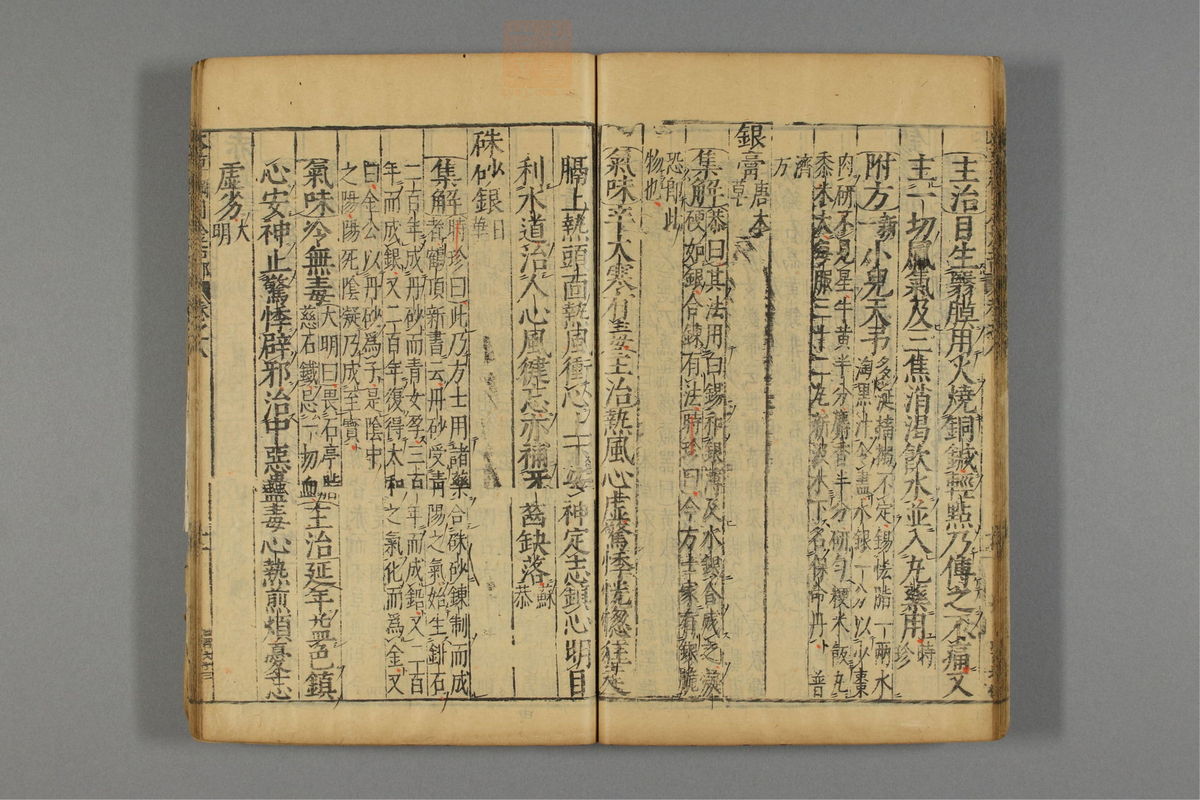 主治目生翳膜用火燒銅鍼輕點乃傅之不痛又
主一切風氣及三焦消渴飲水並入丸藥用時珍
附方新一小兒天弔多涎搐搦不定錫恡脂一兩水
淘黑汁令盡水銀一分以少棗
肉研不見星牛黃半分麝香半分研勻粳米飯丸
黍米大每服三十二丸新汲水下名保命丹普
濟
方
銀膏唐本草
集解恭曰其法用白錫和銀薄及水銀合成之凝
硬如銀合鍊有法時珍曰今方士家有銀脆
恐即此
物也
氣味辛大寒有毒主治熱風心虛驚悸恍惚狂走
膈上熱頭面熱風衝心上下安神定志鎮心明目
利水道治人心風健忘亦補牙齒缺落蘇恭
硃砂銀日華
集解時珍曰此乃方士用諸藥合硃砂鍊制而成
者鶴頂新書云丹砂受青陽之氣始生鉚石
二百年成丹砂而青女孕三百年而成鉛又二百
年而成銀又二百年復得太和之氣化而爲金又
曰金公以丹砂爲子是陰中
之陽陽死陰凝乃成至寶
氣味冷無毒大明曰畏石亭脂
慈石鐵忌一切血主治延年益色鎮
心安神止驚悸辟邪治中惡蠱毒心熱煎煩憂忘
虛劣大明